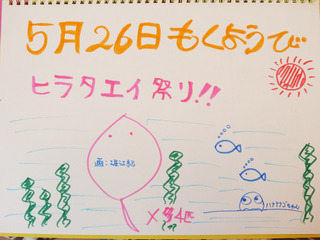 5月26日もくようび
ヒラタエイ祭り!!
画:
×第4匹
ハナアナゴちゃん